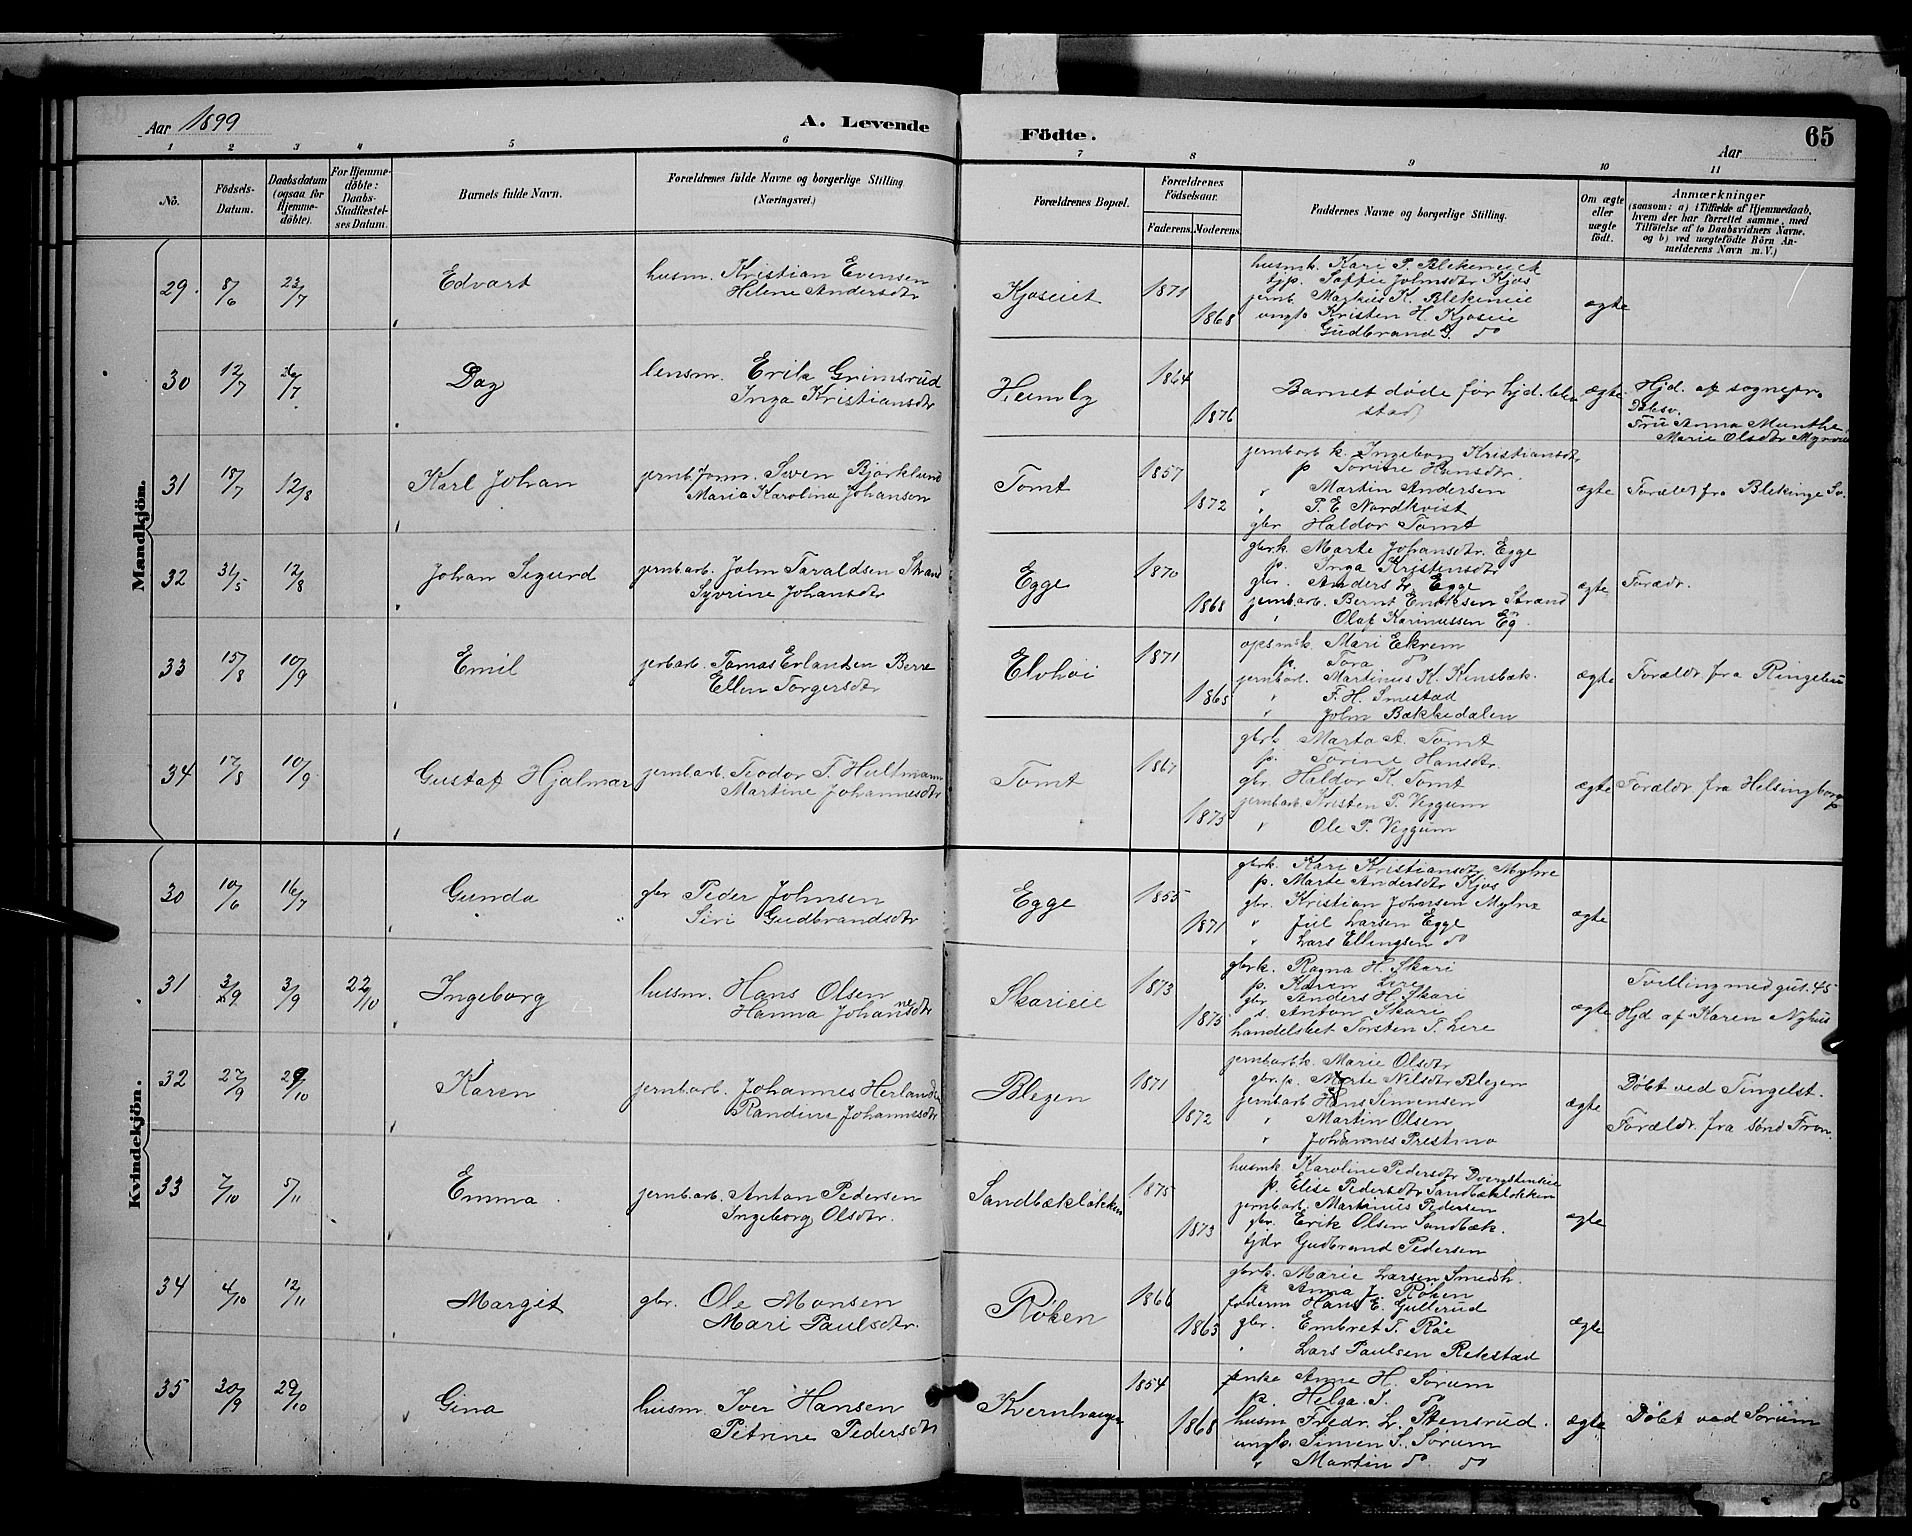 Aar 1899 A. Levende Födte. Aar 65
1 2 3 4 5 6 7 8 9 10 11
No. Födsels-Datum. Daabsdatum (ogsaa for Hjemme-döbte). For Hjemme-döbte: Daabs-Stadfæstel-ses Datum. Barnets fulde Navn. Forældrenes fulde Navne og borgerlige Stilling (Næringsvei.) Forældrenes Bopæl. Forældrenes Födselsaar. Faderens. Moderens. Faddernes Navne og borgerlige Stilling. Om ægte eller uægte födt. Anmærkninger (saasom: a) i Tilfælde af Hjemmedaab, hvem der har forrettet samme, med Tilföielse af to Daabsvidners Navne. og b) ved uægtefödte Börn An-melderens Navn m.V.)
Mandkjön.
29. 8/6 23/7 Edvart husm. Kristian Evensen Kjoseiet 1871 husmk. Kari P. Blekeneiet ægte
Helene Andersdtr 1868 tjp. Soffie Johnsdtr Kjos
jernb Magnus K. Blekeneie
ungk. Kristen H. Kjoseie
Gudbrand do
30 12/7 /7 Dag lensm. Erik Grimsrud Heimly 1864 Barnet døde før hjd. blev ægte Hjd. af sognepr.
Inga Kristiansdtr 1876 stad
Fru Anna Munthe
Marie Olsdtr
31 18/7 12/8 Karl Johan jernb.form. Sven Björklund Tomt 1857 jernbarb k. Ingeborg Kristiansdtr ægte Forældr fra Blekinge Sv.
Maria Karolina Johanson 1872 p Torine Hansdtr.
" Martin Andersen
" P. E Nordkvist
gbr Haldor Tomt
32 31/5 12/8 Johan Sigurd jernb.arb. John Taraldsen Strand Egge 1870 gbrk. Marte Johansdtr. Egge ægte Forældr.
Syvrine Johansdtr 1868 p. Inga Kristensdtr
gbr. Anders L. Egge
jernb.arb. Bernt Eriksen Strand
" Olaf Karinussen Eg.
33 15/8 10/9 Emil jerbarb. Tomas Erlandsen Berre Elvhøi 1871 opsmk. Mari Ekrem ægte Forældr. fra Ringebu
Ellen Torgersdtr 1865 p. Tora do
jernbarb. Martinus K. Kinsbæk.
" F. H. Smestad
" John Bækkedalen
34 17/8 10/9 Gustaf Hjalmar jernb.arb. Teodor T. Hultmann Tomt 1867 gbrk. Marta A. Tomt ægte Forældr. fra Helsingborg
Martine Johannesdtr 1873 p. Torine Hansdtr.
gbr Heldor K. Tomt
jernbarb Kristen P. Veggum
" Ole P. Veggum
Kvindekjön.
30 10/6 16/7 Gunda gbr Peder Johnsen Egge 1855 gbrk. Kari Kristiansdtr Myhre ægte
Siri Gudbrandsdtr 1871 p. Marte Andersdtr Kjos
gbr. Kristian Johnsen Myhre
" Juel Larsen Egge
" Lars Ellingsen do
31 3/9 3/9 22/10 Ingeborg husm. Hans Olsen Skarieie 1873 gbrk. Ragna H. Skari ægte Tvilling med gut. 45
Hanna Johannesdtr 1875 p. Karen Lere Hjd af Karen Nyhus
gbr Anders H. Skari
s. Anton Skari
handelsbet Torsten T. Lere
32 27/9 29/10 Karen jernb.arb. Johannes Blegen 1871 jernbarb.k. Marie Olsdtr ægte Döbt ved Tingelst.
Randine Johannesdtr 1872 gbr.p. Marte Nilsdtr Blegen Forældr. fra Sønd Fron.
jernbarb Hans Simensen
" Martin Olsen
" Johannes Prestmo
33 7/10 5/11 Emma jernb.arb. Anton Pedersen Sandbækløkken 1875 husmk Karoline Pedersdtr Dvergsteneie ægte
Ingeborg Olsdtr. 1873 p. Elise Pedersdtr Sandbækløkken
jernbarb. Martinus Pedersen
gbr. Erik Olsen Sandbæk.
tjdr Gudbrand Pedersen
34 4/10 12/11 Margit gbr. Ole Monsen Røken 1866 gbrk. Marie Larsen Smedsh. ægte
Mari Paulsdtr. 1863 p. Anna J. Røken
føderm Hans E. Gullerud
gbr. Embret T. Røie
" Lars Paulsen Rekstad
35 30/9 29/10 Gina husm. Iver Hansen Kvernhaugen 1854 enke Anne H. Sørum ægte Döbt ved Sørum
Petrine Pedersdtr 1868 p. Helga S. do
husm Fredr. L. Stensrud.
ungk. Simen S. Sørum
" Martin do do